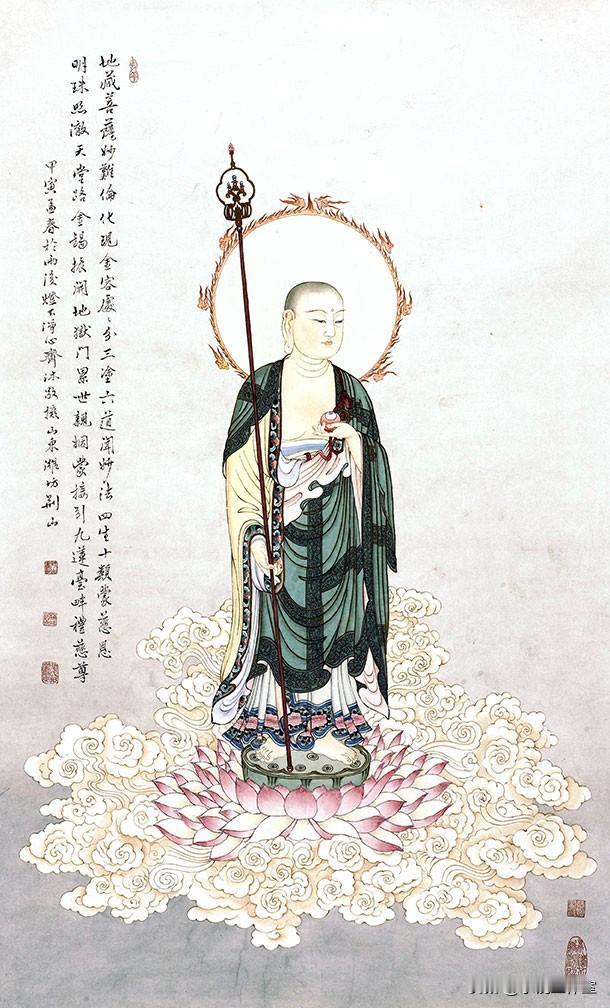 地藏菩薩妙難倫化現金容處〻分三塗六道聞妙法四生十類蒙慈恩
明珠照澈天堂路金錫振開地獄門累世親姻蒙接引九蓮臺畔禮慈尊
甲寅孟春於雨後燈下淨心齊沐敬繪山東濰坊荊山